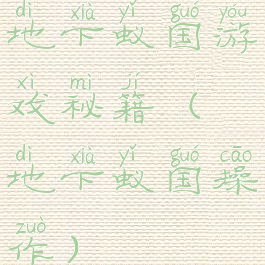 dì xià yǐ guó yóu
地下蚁国游
xì mì jí
戏秘籍（
dì xià yǐ guó cāo
地下蚁国操
zuò
作）